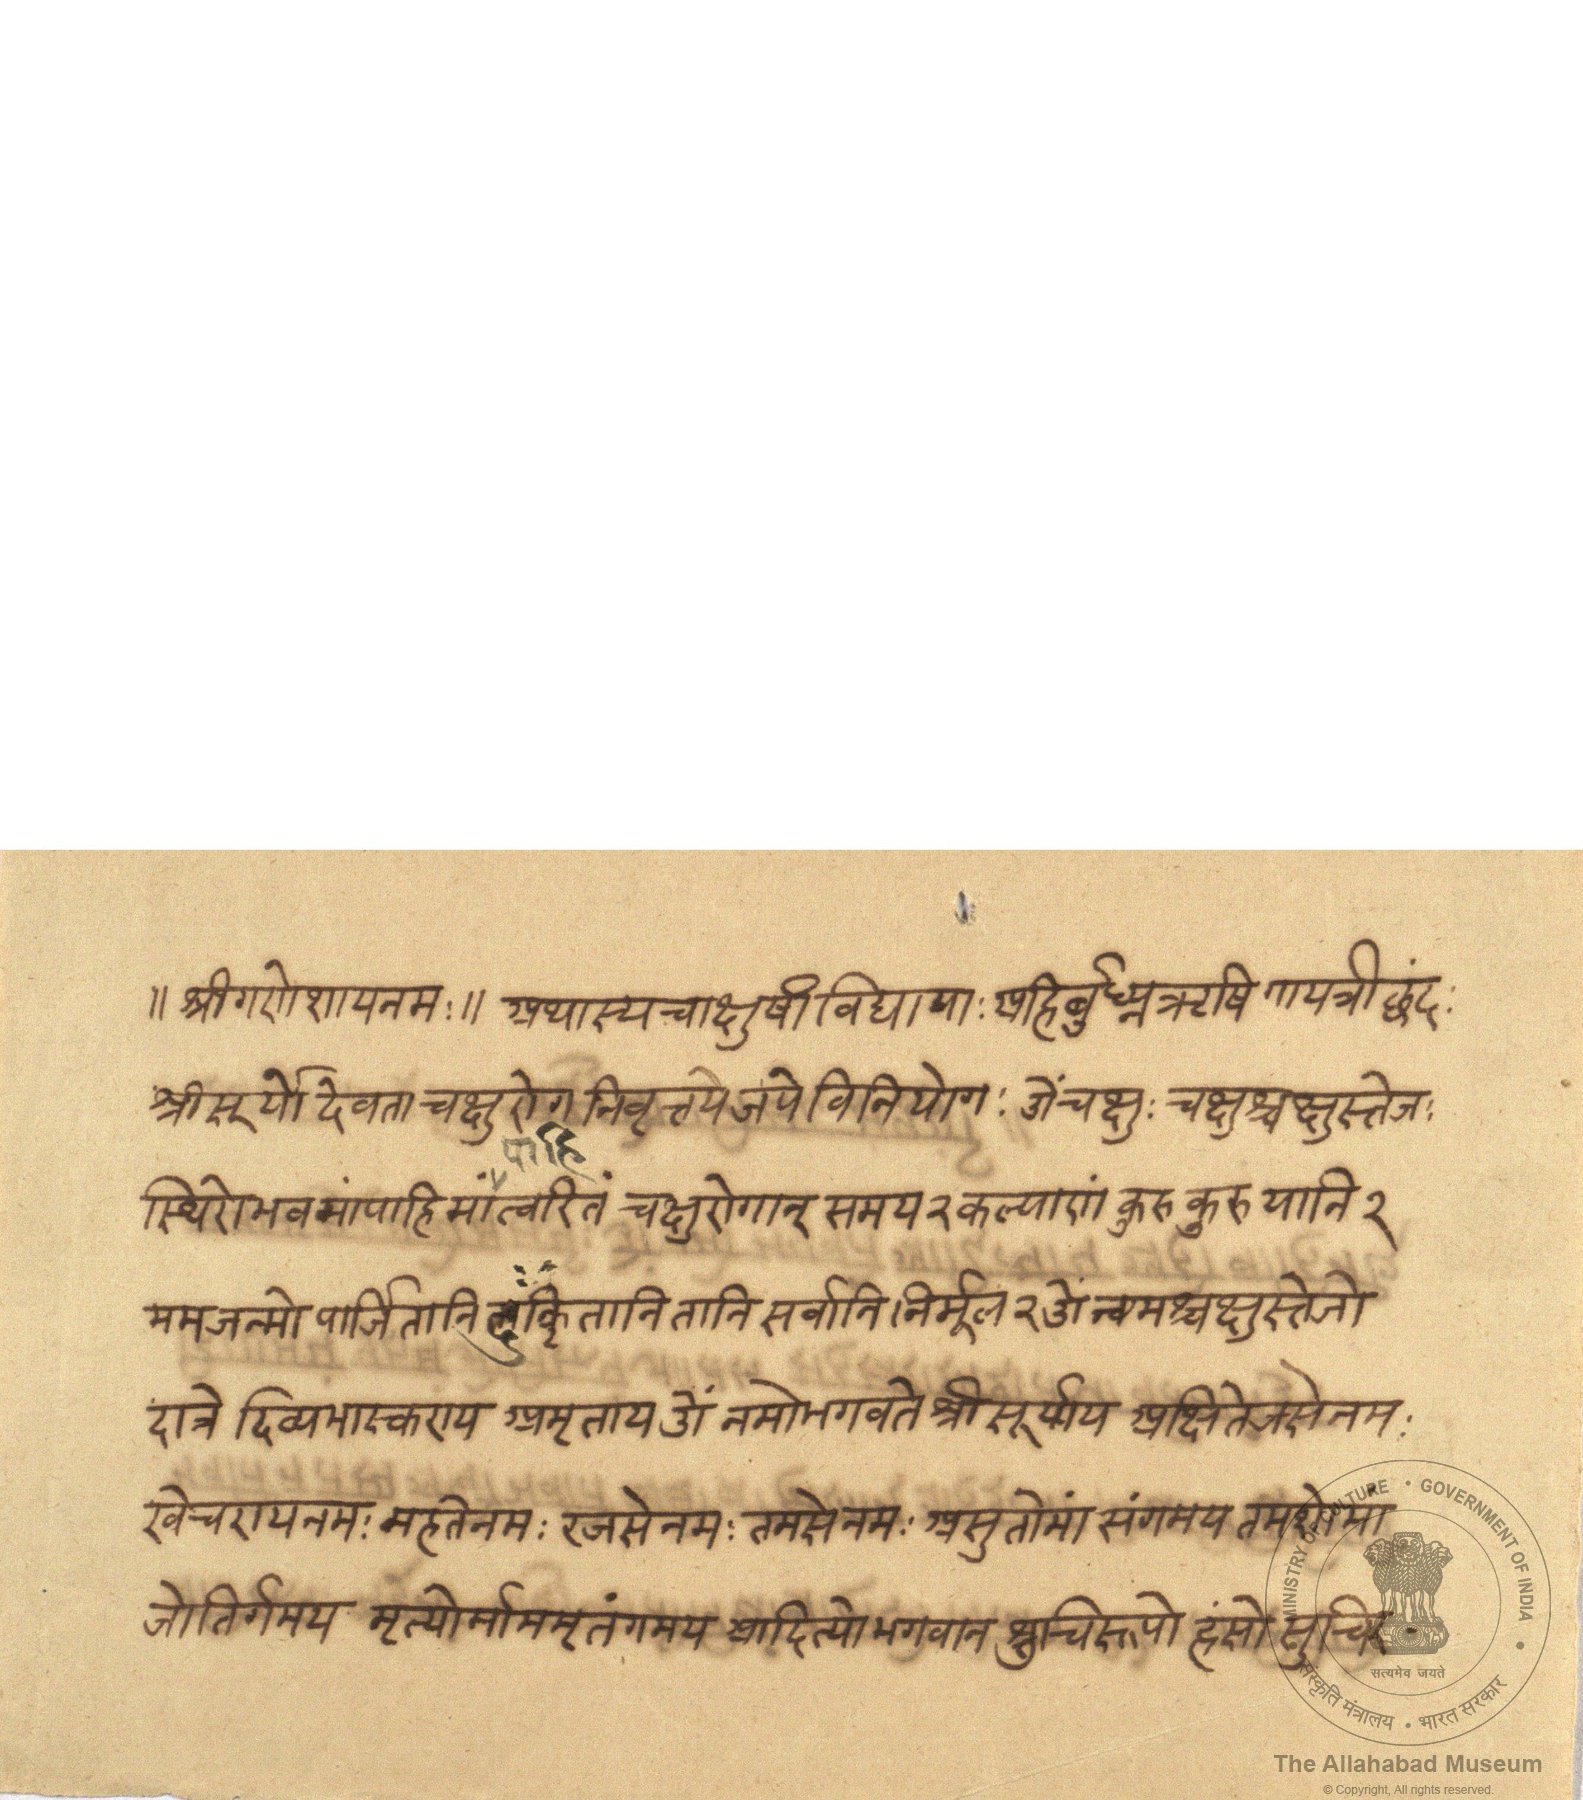 ॥ श्रीगणेशायनमः॥ अथास्यचाक्षुषीविद्यायाः अहिर्बुध्न्यऋषि गायत्रीछंदः
श्रीसूर्योदेवता चक्षुरोगनिवृत्तयेजपेविनियोगः ओंचक्षुः चक्षुश्चक्षुस्तेजः
पाहि
स्थिरोभवमांपाहिमांत्वरितं चक्षुरोगान् समय२कल्याणं कुरुकुरुयानि२
ममजन्मोपार्जितानि तानिसर्वानिनिर्मूल२ओं स्तेजो
दात्रे दिव्यभास्कराय अमृतायओं नमोभगवतेश्रीसूर्याय अक्षितेजसेनमः
खेचरायनमः महतेनमः रजसेनमः तमसेनमः असुतोमां संगमय तमशोमा
जोतिर्गमय मृत्योर्माममृतंगमय आदित्योभगवान श्रुचिरूपो हंसो
MINISTRY OF CULTURE • GOVERNMENT OF INDIA
सत्यमेव जयते
संस्कृति मंत्रालय • भारत सरकार
The Allahabad Museum
© Copyright, All rights reserved.